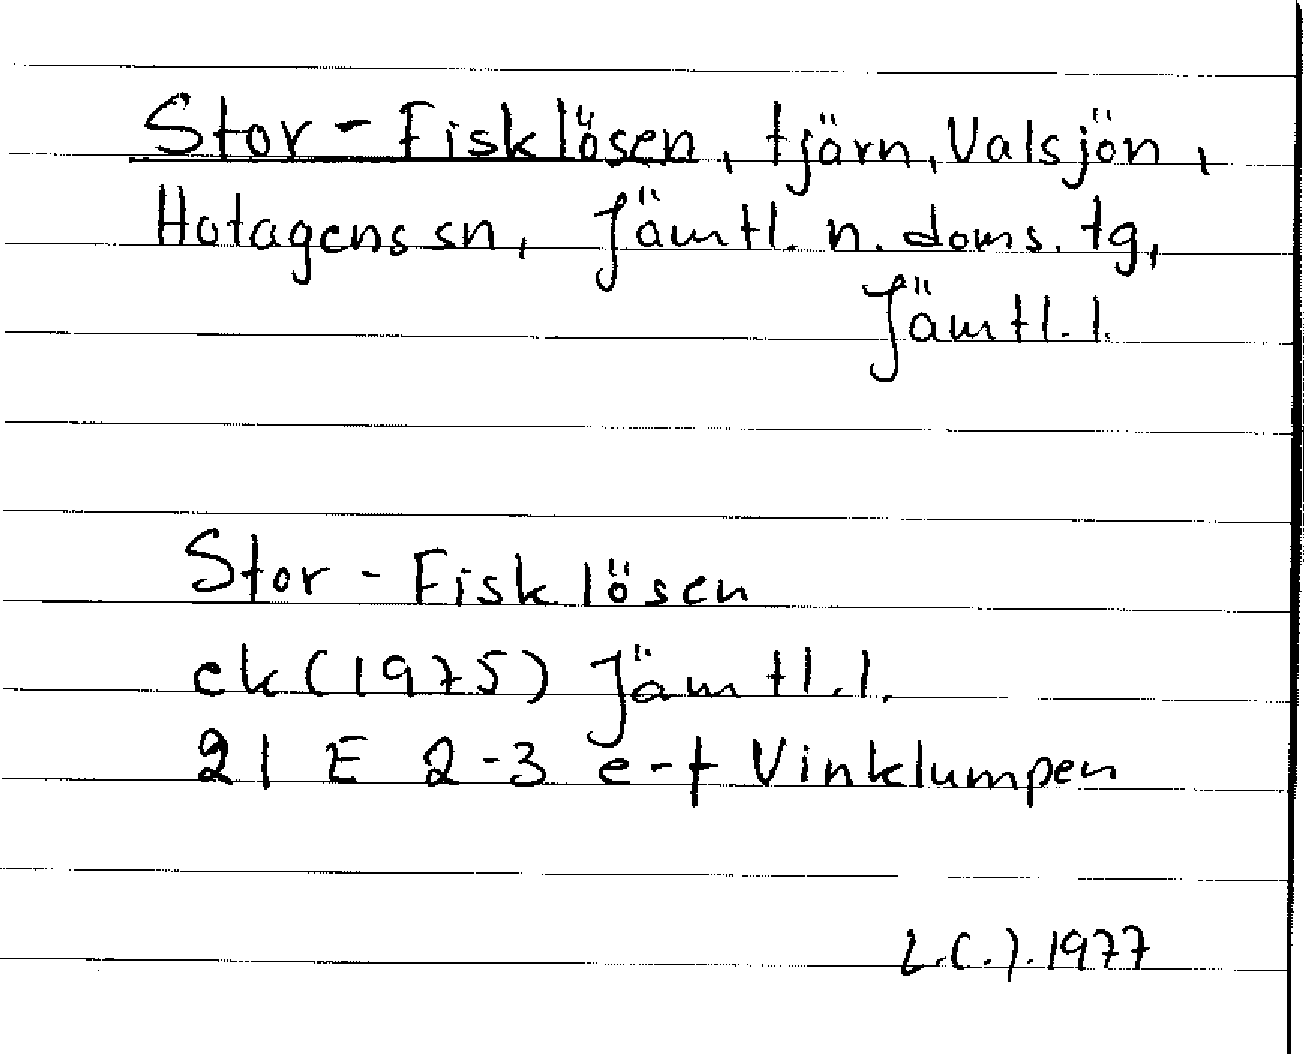 Stor-Fisklösen, tjärn, Valsjön,
Hotagens sn, Jämtl. n. doms. tg,
Jämtl. l.
Stor-Fisklösen
ek (1975) Jämtl. l.
21 E 2-3 e-f Vinklumpen
L.C.J. 1977